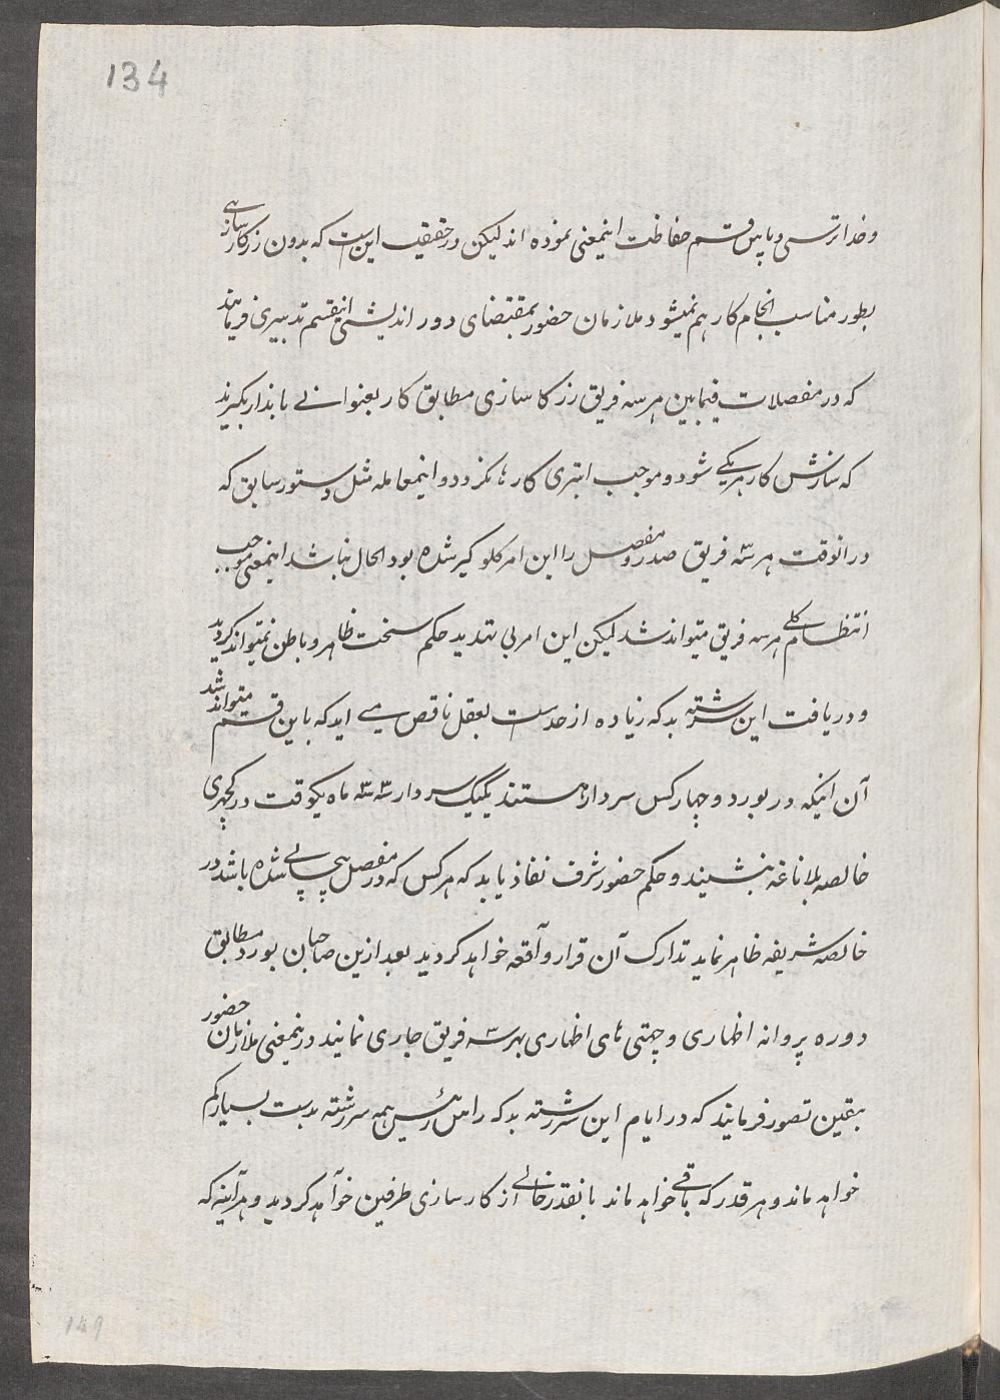 134
و خدا ترسی و پاس قسم حفاظت اینمعنی نموده اند لیکن در حقیقت این ست که بدون زر کارسازی
بطور مناسب انجام کار هم نمیشود ملازمان حضور بمقتضای دور اندیشی اینقسم تدبیری فرمایند
که در مفصلات فیمابین هر سه فریق زر کا سازی مطابق کار بعنوانے بانداز بگیرند
که سازش کار هر یکے شود و موجب ابتری کار ها نگردد و اینمعامله مثل دستور سابق که
در انوقت هر سه فریق صدر و مفصل را این امر کلو گیر شده بود الحال نباشد اینمعنی موجب
انتظام کلے هر سه فریق میتواند شد لیکن این امر بی تهدید حکم سخت ظاهر و باطن نمیتواند گردید
و دریافت این سررشته بد که زیاده از حد ست بعقل ناقص مے اید که باین قسم میتواند شد
آن اینکه در بورد و چهار کس سردار هستند یکیک سردار سه سه ماه یکوقت در کچهری
خالصه بلا ناغه بنشیند و حکم حضور شرف نفاذ یابد که هر کس که در مفصل بیچپائے شده باشد در
خالصه شریفه ظاهر نماید تدارک آن قرار واقعه خواهد گردید بعد ازین صاحبان بورد مطابق
دوره پروانه اظهاری و چهتی های اظهاری بهر سه فریق جاری نمایند درینمعنی ملازمان حضور
بیقین تصور فرمایند که در ایام این سررشته بد که راس رئیس همه سررشته بدست بسیار کم
خواهد ماند و هر قدر که باقے خواهد ماند بانقدر خالے از کارسازی طرفین خواهد گردید و هر آینه که
149